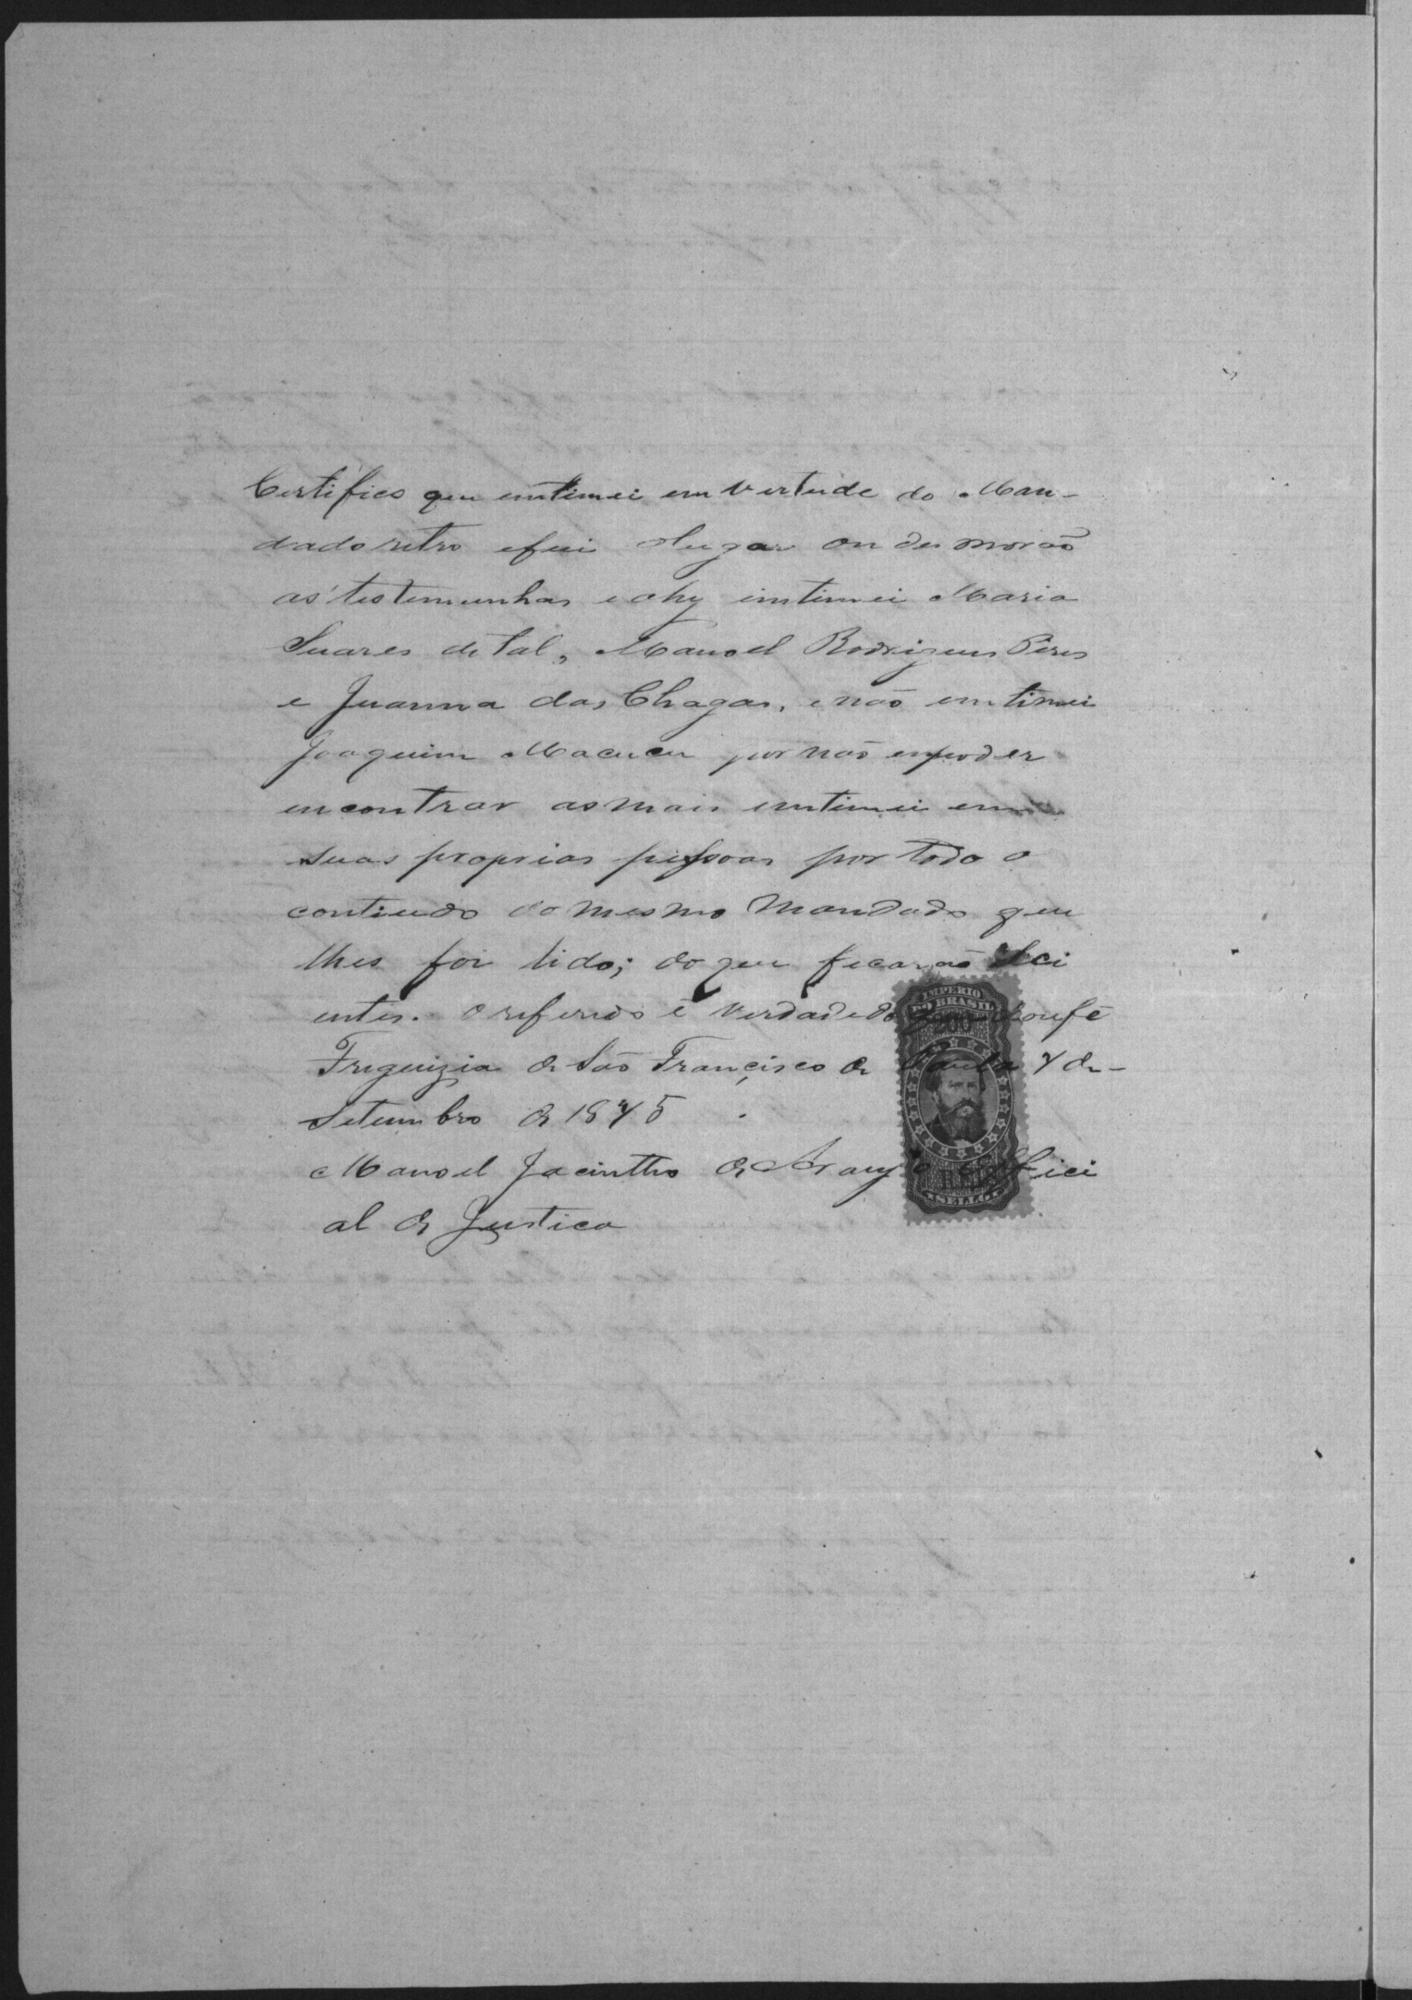 Certifico que emtimei em vertude do Man-
dado retro e fui olugar ondes morão
as testemunhas e ahy imtimei Maria
Suares de tal, Manoel Rodrigues Pires
e Juanna das Chagas, e não emtimei
Joaquim Macucu por não empoder
encontrar as mais emtimei em
suas proprias pessoas por todo o
contiudo do mesmo Mandado que
lhes foi lido; do que ficarão Sci
entes. O referido é verdade do que doufé
Freguizia de São Francisco de Paula 7 de
Setembro de 1875
Manoel Jacintho de Araujo Offici
al de Justica
IMPERIO
DO BRASIL
200
REIS
SELLO